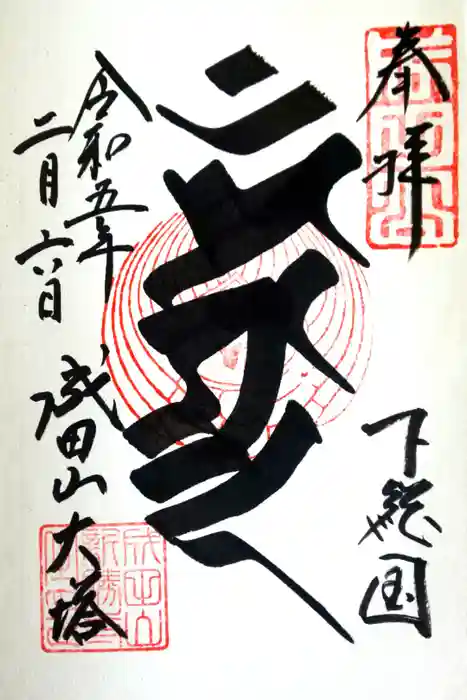 奉拝
下総国
令和五年
二月六日
成田山大塔